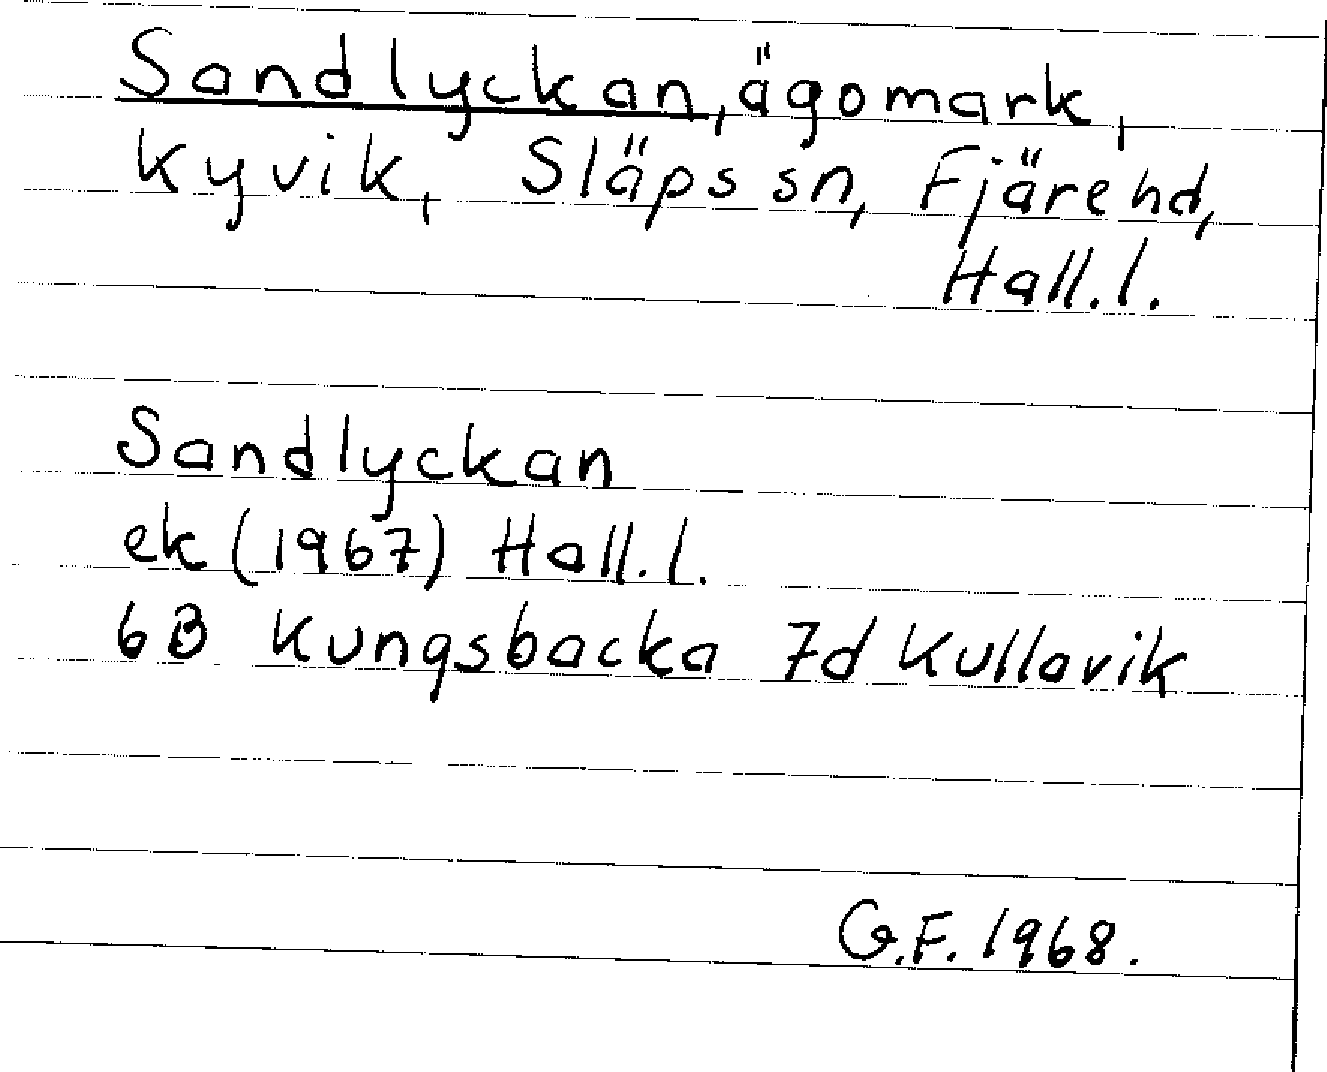 Sandlyckan, ägomark,
Kyvik, Släps sn, Fjäre hd,
Hall.l.
Sandlyckan
ek (1967) Hall.l.
6B Kungsbacka 7d Kullavik
G.F. 1968.